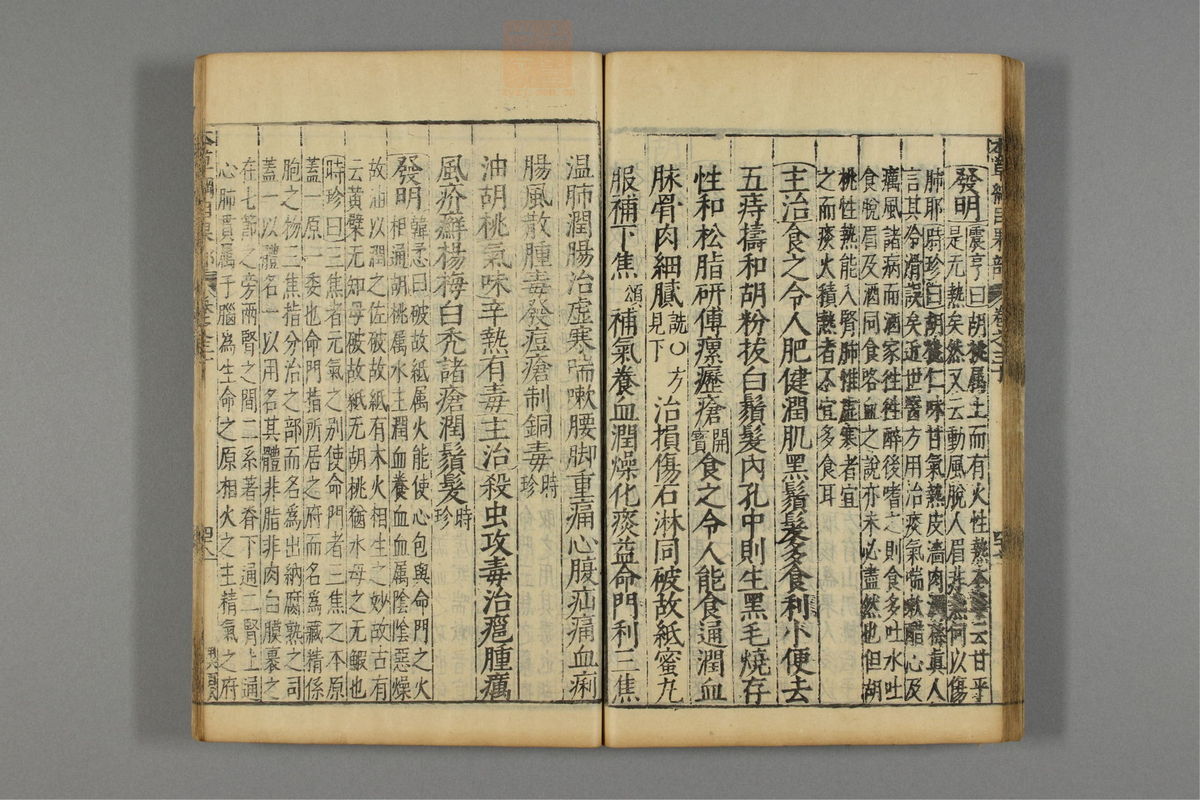 發明震亨曰胡桃属土而有火性熱本草云甘平
是无熱矣然又云動風脫人眉非熱何以傷
肺耶時珍曰胡桃仁味甘氣熱皮濇肉潤孫真人
言其冷滑誤矣近世醫方用治痰氣喘嗽醋心及
癘風諸病而酒家往往醉後嗜之則食多吐水吐
食脫眉及酒同食咯血之說亦未必盡然也但胡
桃性熱能入腎肺惟虛寒者宜
之而痰火積熱者不宜多食耳
主治食之令人肥健潤肌黑鬚髮多食利小便去
五痔擣和胡粉拔白鬚髮內孔中則生黑毛燒存
性和松脂研傅瘰癧瘡開寶食之令人能食通潤血
脉骨肉細膩詵○方見下治損傷石淋同破故紙蜜丸
服補下焦頌補氣養血潤燥化痰益命門利三焦
温肺潤腸治虛寒喘嗽腰脚重痛心腹疝痛血痢
腸風散腫毒發痘瘡制銅毒時珍
油胡桃氣味辛熱有毒主治殺虫攻毒治癰腫癘
風疥癬楊梅白禿諸瘡潤鬚髮時珍
發明韓𢘅曰破故紙属火能使心包與命門之火
相通胡桃属水主潤血養血血属陰陰惡燥
故油以潤之佐破故紙有木火相生之妙故古有
云黃檗无知母破故紙无胡桃猶水母之无鰕也
時珍曰三焦者元氣之别使命門者三焦之本原
蓋一原一委也命門指所居之府而名為藏精係
胞之物三焦指分治之部而名為出納腐熟之司
蓋一以體名一以用名其體非脂非肉白膜裹之
在七節之旁兩腎之間二系著脊下通二腎上通
心肺貫属于腦為生命之原相火之主精氣之府